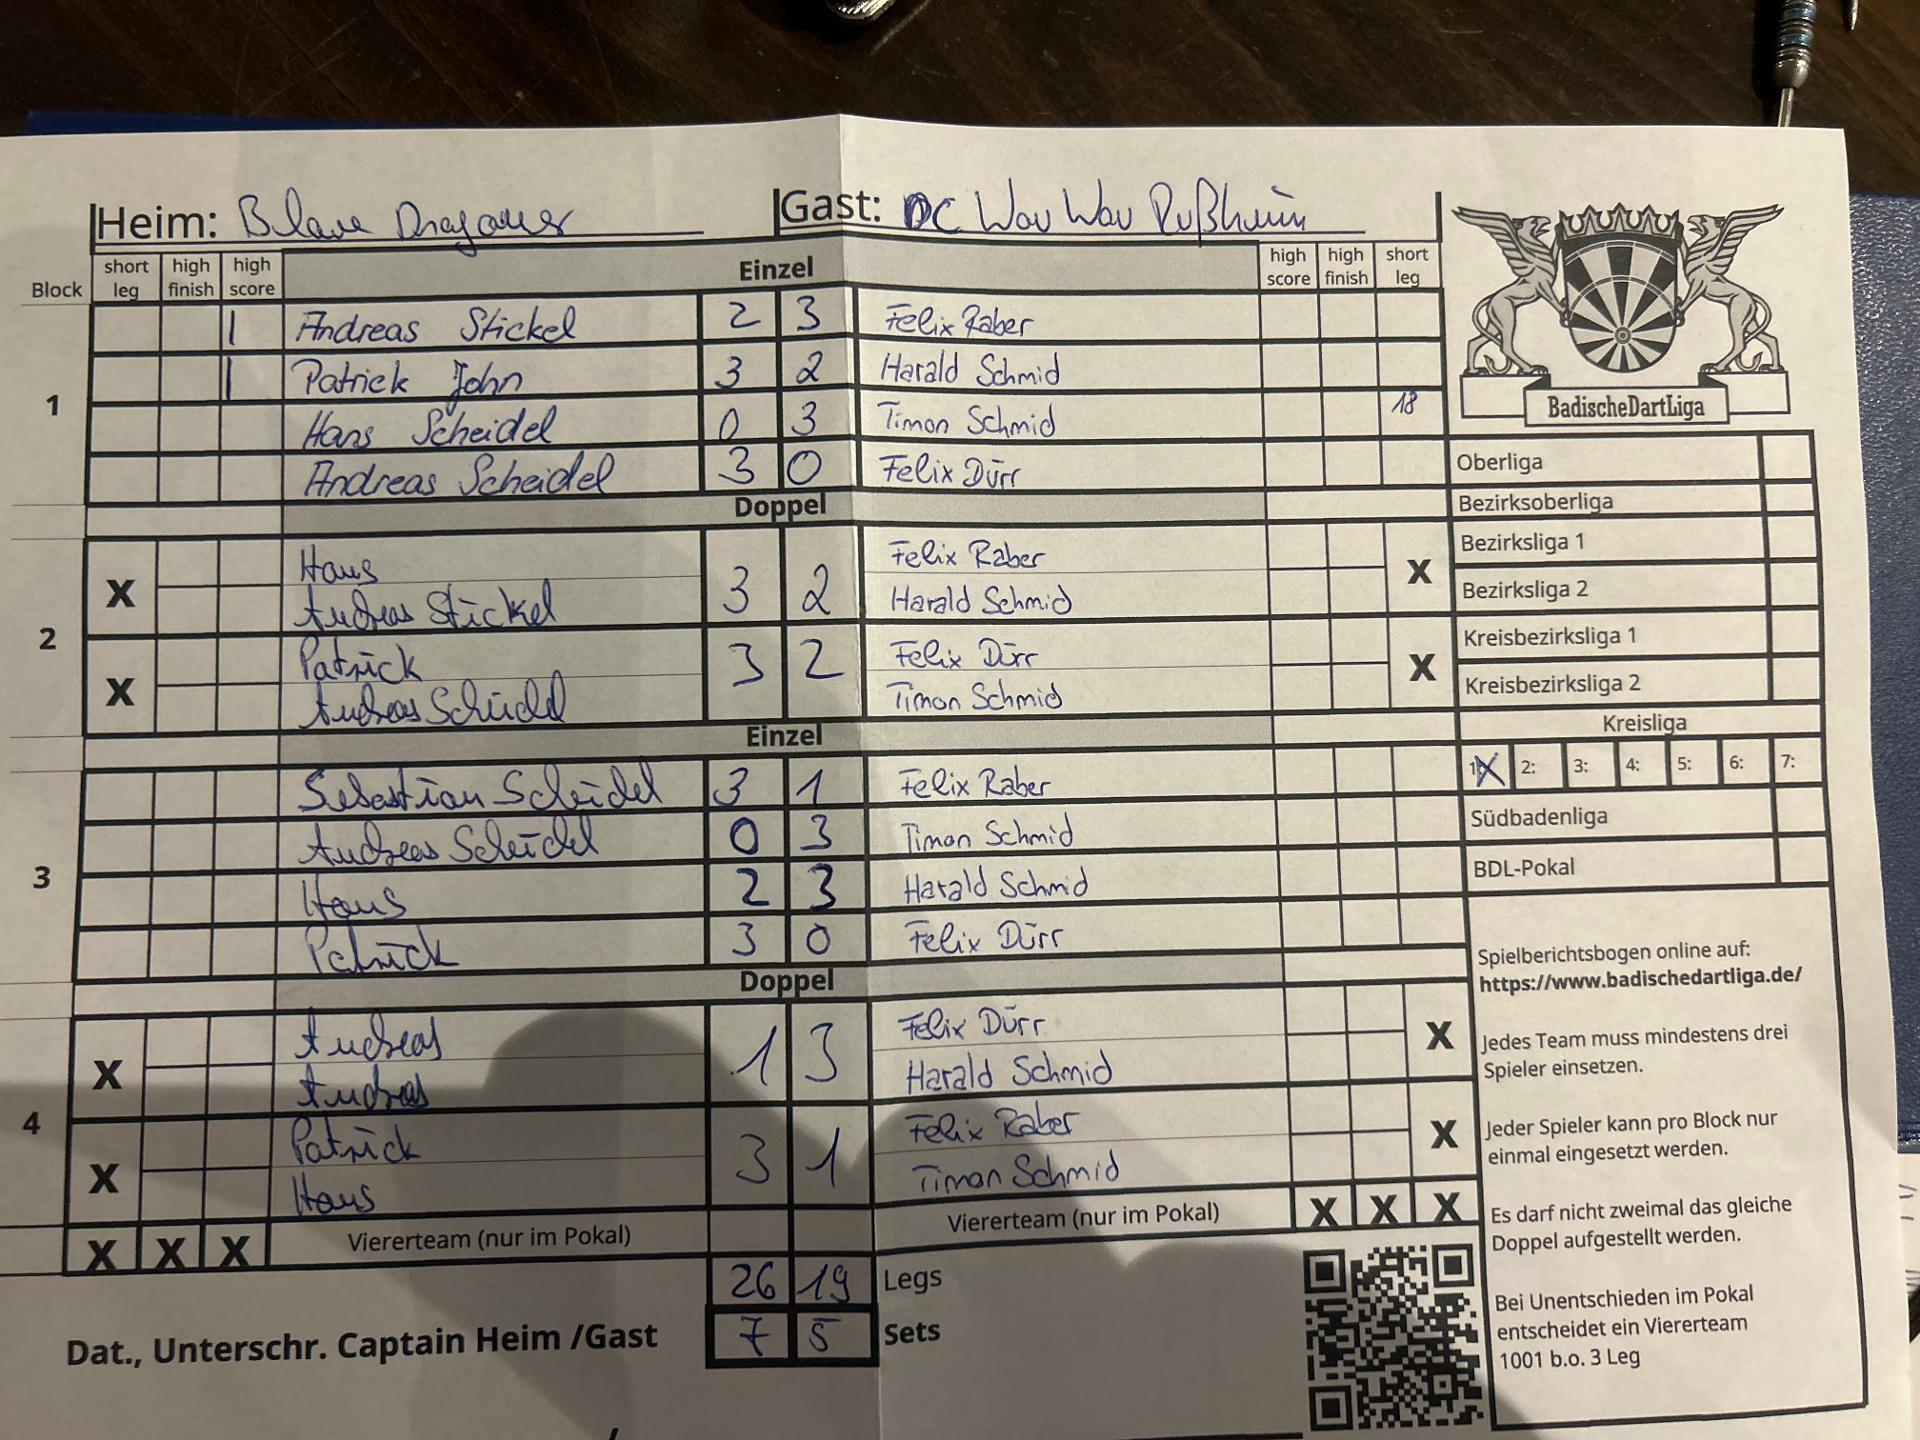 Heim: Blaue Dragoner Gast: DC Wau Wau Rußheim
Block short leg high finish high score Einzel high score high finish short leg
1
| Andreas Stickel 2 3 Felix Raber
| Patrick John 3 2 Harald Schmid
Hans Scheidel 0 3 Timon Schmid 18
Andreas Scheidel 3 0 Felix Dürr
Doppel
2
X Hans 3 2 Felix Raber X
Andreas Stickel Harald Schmid
X Patrick 3 2 Felix Dürr X
Andreas Scheidel Timon Schmid
Einzel
3
Sebastian Scheidel 3 1 Felix Raber
Andreas Scheidel 0 3 Timon Schmid
Hans 2 3 Harald Schmid
Patrick 3 0 Felix Dürr
Doppel
4
X Andreas 1 3 Felix Dürr X
Andreas Harald Schmid
X Patrick 3 1 Felix Raber X
Hans Timon Schmid
X X X Viererteam (nur im Pokal) Viererteam (nur im Pokal) X X X
26 19 Legs
7 5 Sets
Dat., Unterschr. Captain Heim /Gast
BadischeDartLiga
Oberliga
Bezirksoberliga
Bezirksliga 1
Bezirksliga 2
Kreisbezirksliga 1
Kreisbezirksliga 2
Kreisliga
1: X 2: 3: 4: 5: 6: 7:
Südbadenliga
BDL-Pokal
Spielberichtsbogen online auf:
https://www.badischedartliga.de/
Jedes Team muss mindestens drei
Spieler einsetzen.
Jeder Spieler kann pro Block nur
einmal eingesetzt werden.
Es darf nicht zweimal das gleiche
Doppel aufgestellt werden.
Bei Unentschieden im Pokal
entscheidet ein Viererteam
1001 b.o. 3 Leg